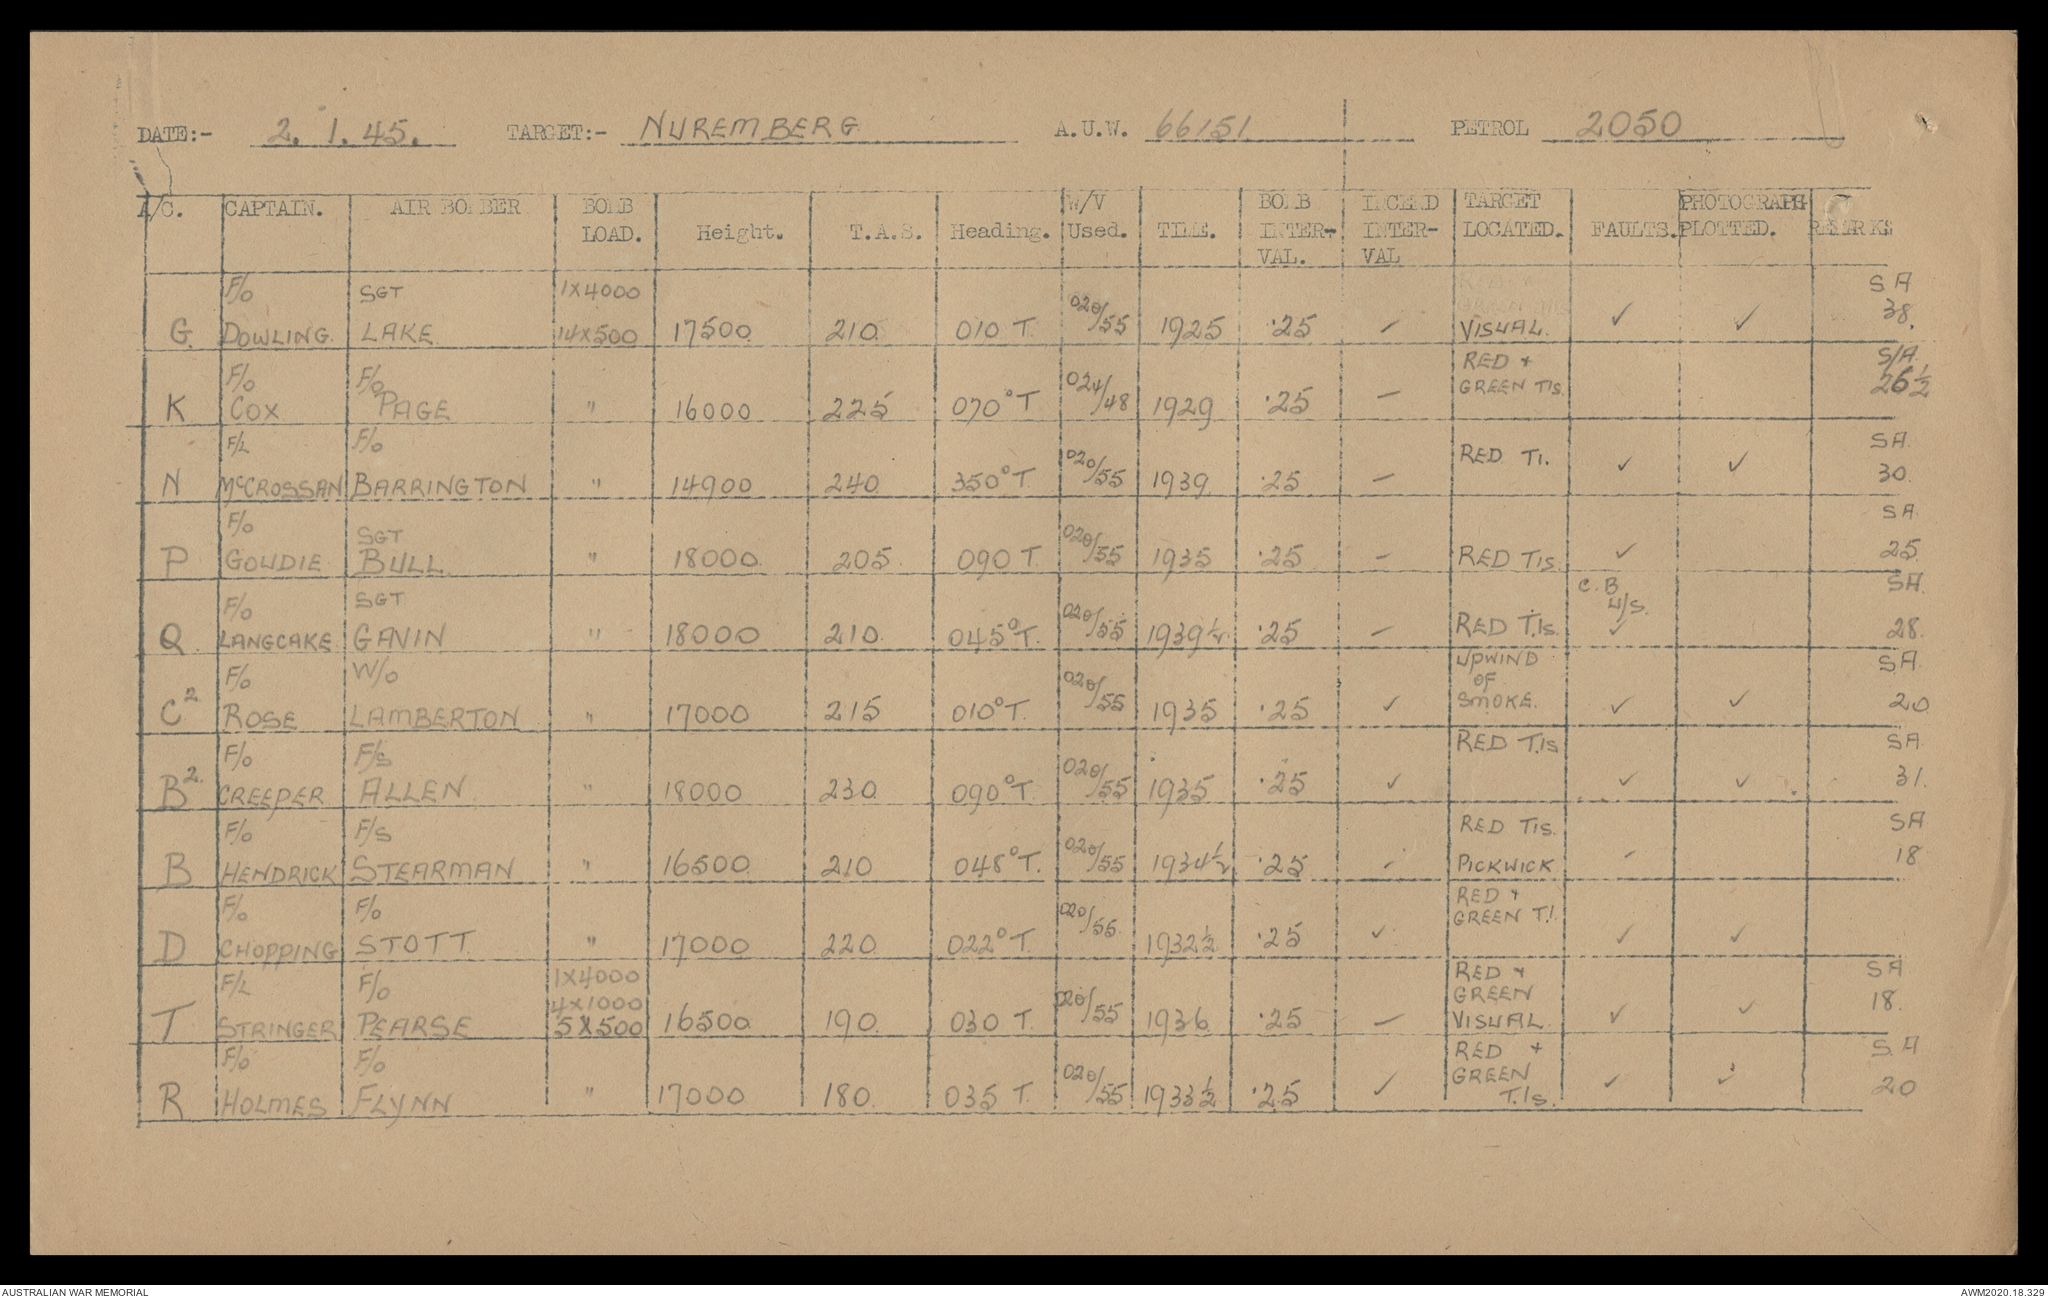 DATE:- 2.1.45. TARGET:- NUREMBERG A.U.W. 66151 PETROL 2050
A/C. CAPTAIN. AIR BOMBER BOMB LOAD. Height. T.A.S. Heading. W/V Used. TIME. BOMB INTER-VAL. INCEND INTER-VAL TARGET LOCATED. FAULTS. PHOTOGRAPH PLOTTED. REMARKS
G. F/O DOWLING. SGT LAKE 1X4000 14X500 17500 210 010 T. 020/55 1925 .25 – VISUAL. ✓ ✓ SA 38.
K F/O COX F/O PAGE " 16000 225 070°T 024/48 1929 .25 – RED + GREEN TIs. S/A 26½
N F/L McCROSSAN F/O BARRINGTON " 14900 240 350°T. 020/55 1939 .25 – RED TI. ✓ ✓ SA 30.
P F/O GOUDIE SGT BULL " 18000 205 090 T. 020/55 1935 .25 – RED TIs ✓ SA 25
Q F/O LANGCAKE SGT GAVIN " 18000 210 045°T. 020/55 1939½ .25 – RED T.Is. C.B U/S. ✓ SA 28.
C² F/O ROSE W/O LAMBERTON " 17000 215 010°T. 020/55 1935 .25 ✓ UPWIND OF SMOKE. ✓ ✓ SA 20
B² F/O CREEPER F/S ALLEN " 18000 230 090°T. 020/55 1935 .25 ✓ RED T.Is ✓ ✓ SA 31.
B F/O HENDRICK F/S STEARMAN " 16500 210 048°T. 020/55 1934½ .25 – RED TIs. PICKWICK ✓ SA 18
D F/O CHOPPING F/O STOTT " 17000 220 022°T. 020/55 1932½ .25 ✓ RED + GREEN T.I. ✓ ✓
T F/L STRINGER F/O PEARSE 1X4000 4X1000 5X500 16500 190 030 T. 020/55 1936 .25 – RED + GREEN VISUAL ✓ ✓ SA 18.
R F/O HOLMES F/O FLYNN " 17000 180 035 T. 020/55 1933½ .25 ✓ RED + GREEN T.Is. ✓ ✓ S.A 20
AUSTRALIAN WAR MEMORIAL AWM2020.18.329